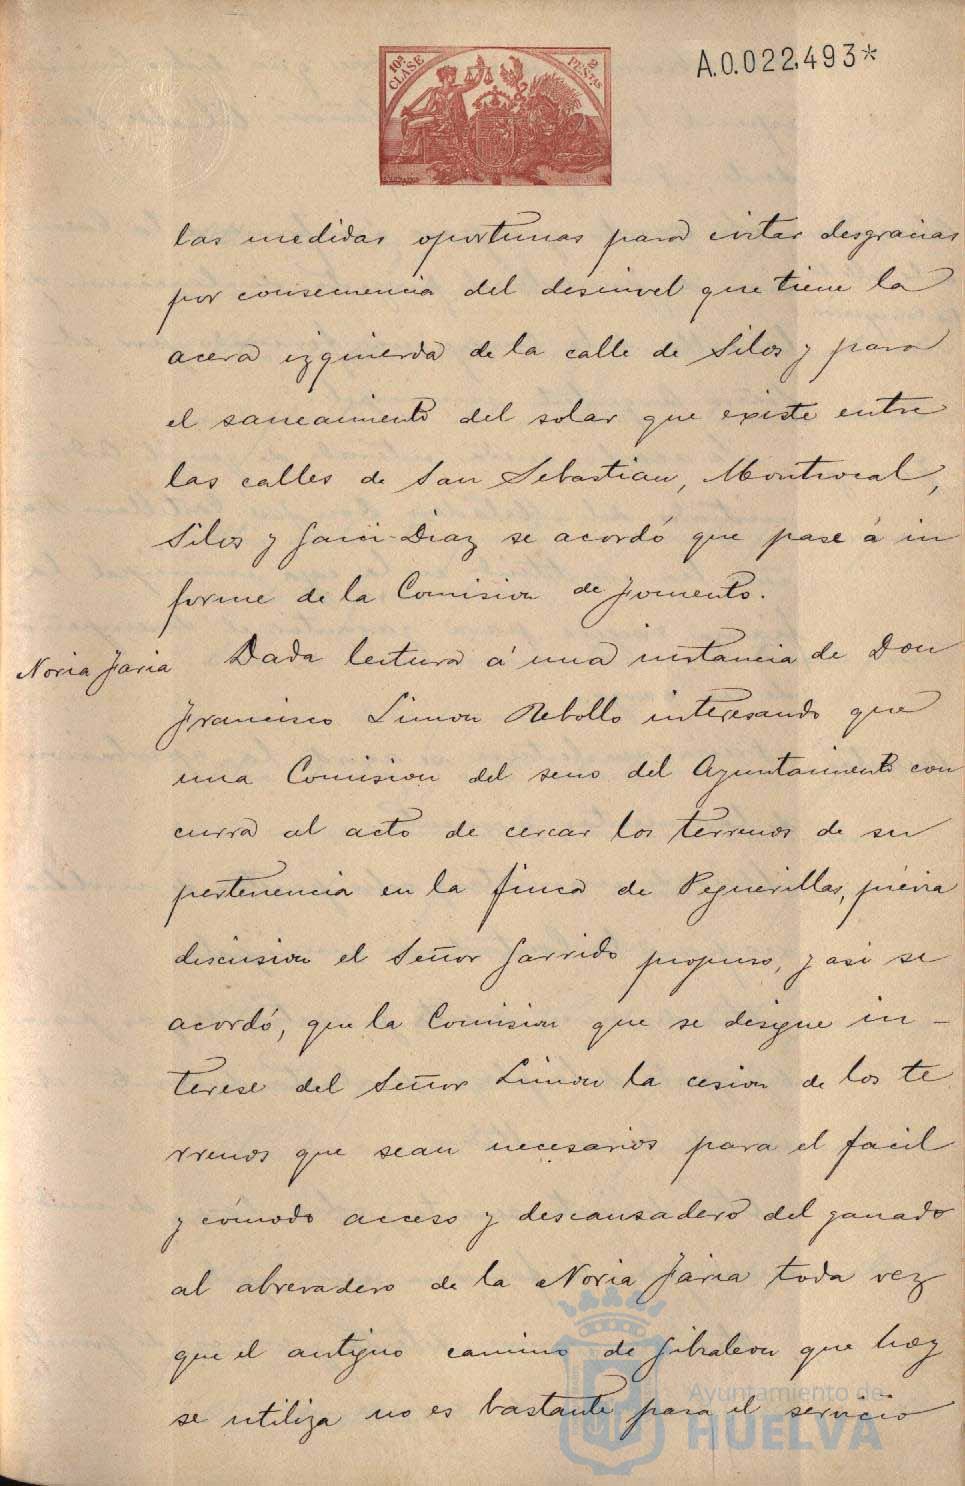 10ª CLASE
2 PESTAS
A.0.022.493*
las medidas oportunas para evitar desgracias
por consecuencia del desnivel que tiene la
acera izquierda de la calle de Silos y para
el saneamiento del solar que existe entre
las calles de San Sebastian, Montrocal,
Silos y Garci-Diaz se acordó que pase á in
forme de la Comision de Fomento.
Noria Jaria
Dada lectura á una instancia de Don
Francisco Limon Rebollo interesando que
una Comision del seno del Ayuntamiento con
curra al acto de cercar los terrenos de su
pertenencia en la finca de Peguerillas, prévia
discusion el Señor Garrido propuso, y asi se
acordó, que la Comision que se designe in-
terese del Señor Limon la cesion de los te
rrenos que sean necesarios para el facil
y cómodo acceso y descansadero del ganado
al abrevadero de la Noria Jaria toda vez
que el antiguo camino de Gibraleon que hoy
se utiliza no es bastante para el servicio
Ayuntamiento de
HUELVA